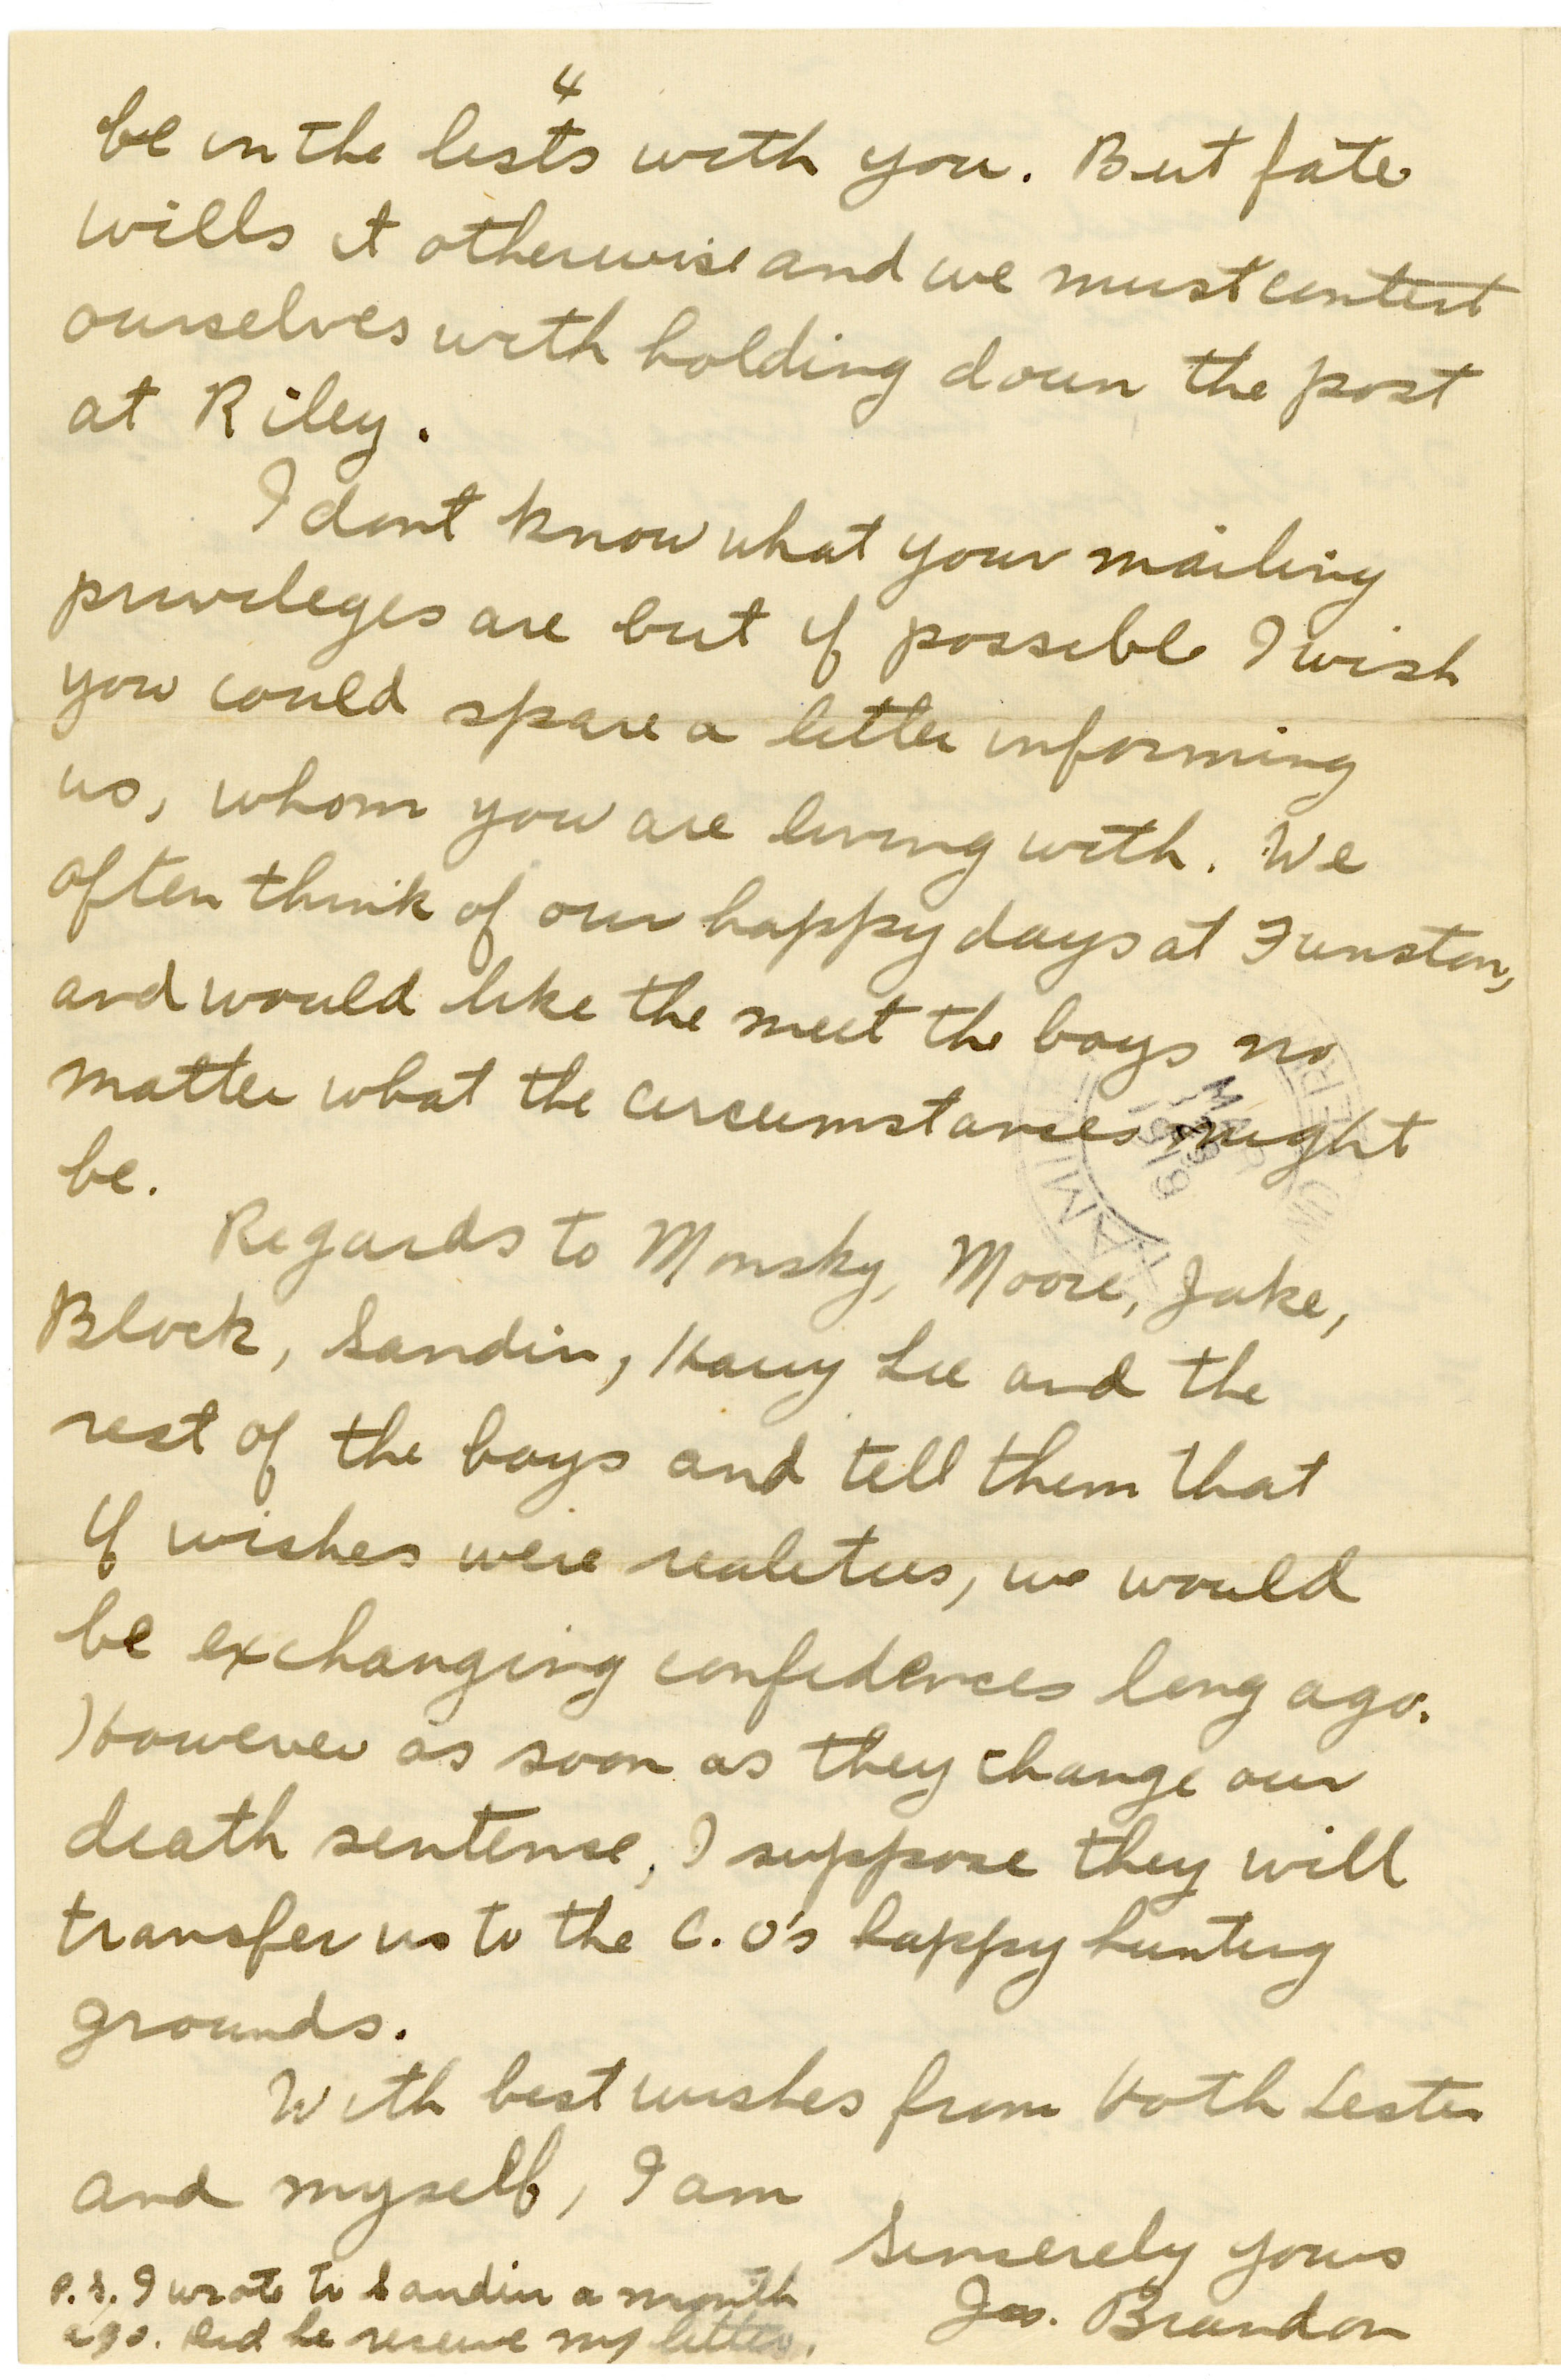 4
be in the lists with you. But fate
wills it otherwise and we must content
ourselves with holding down the post
at Riley.
I dont know what your mailing
privileges are but if possible I wish
you could spare a letter informing
us, whom you are living with. We
often think of our happy days at Funston,
and would like the meet the boys no
matter what the circumstances might
be.
Regards to Monsky, Moore, Jake,
Block, Sandin, Harry Lee and the
rest of the boys and tell them that
if wishes were realities, we would
be exchanging confidences long ago.
However as soon as they change our
death sentence, I suppose they will
transfer us to the C.O's happy hunting
grounds.
With best wishes from both Lester
and myself, I am
Sincerely yours
Jos. Brandon
P.S. I wrote to Sandin a month
ago. Did he receive my letter.
MAR
1919